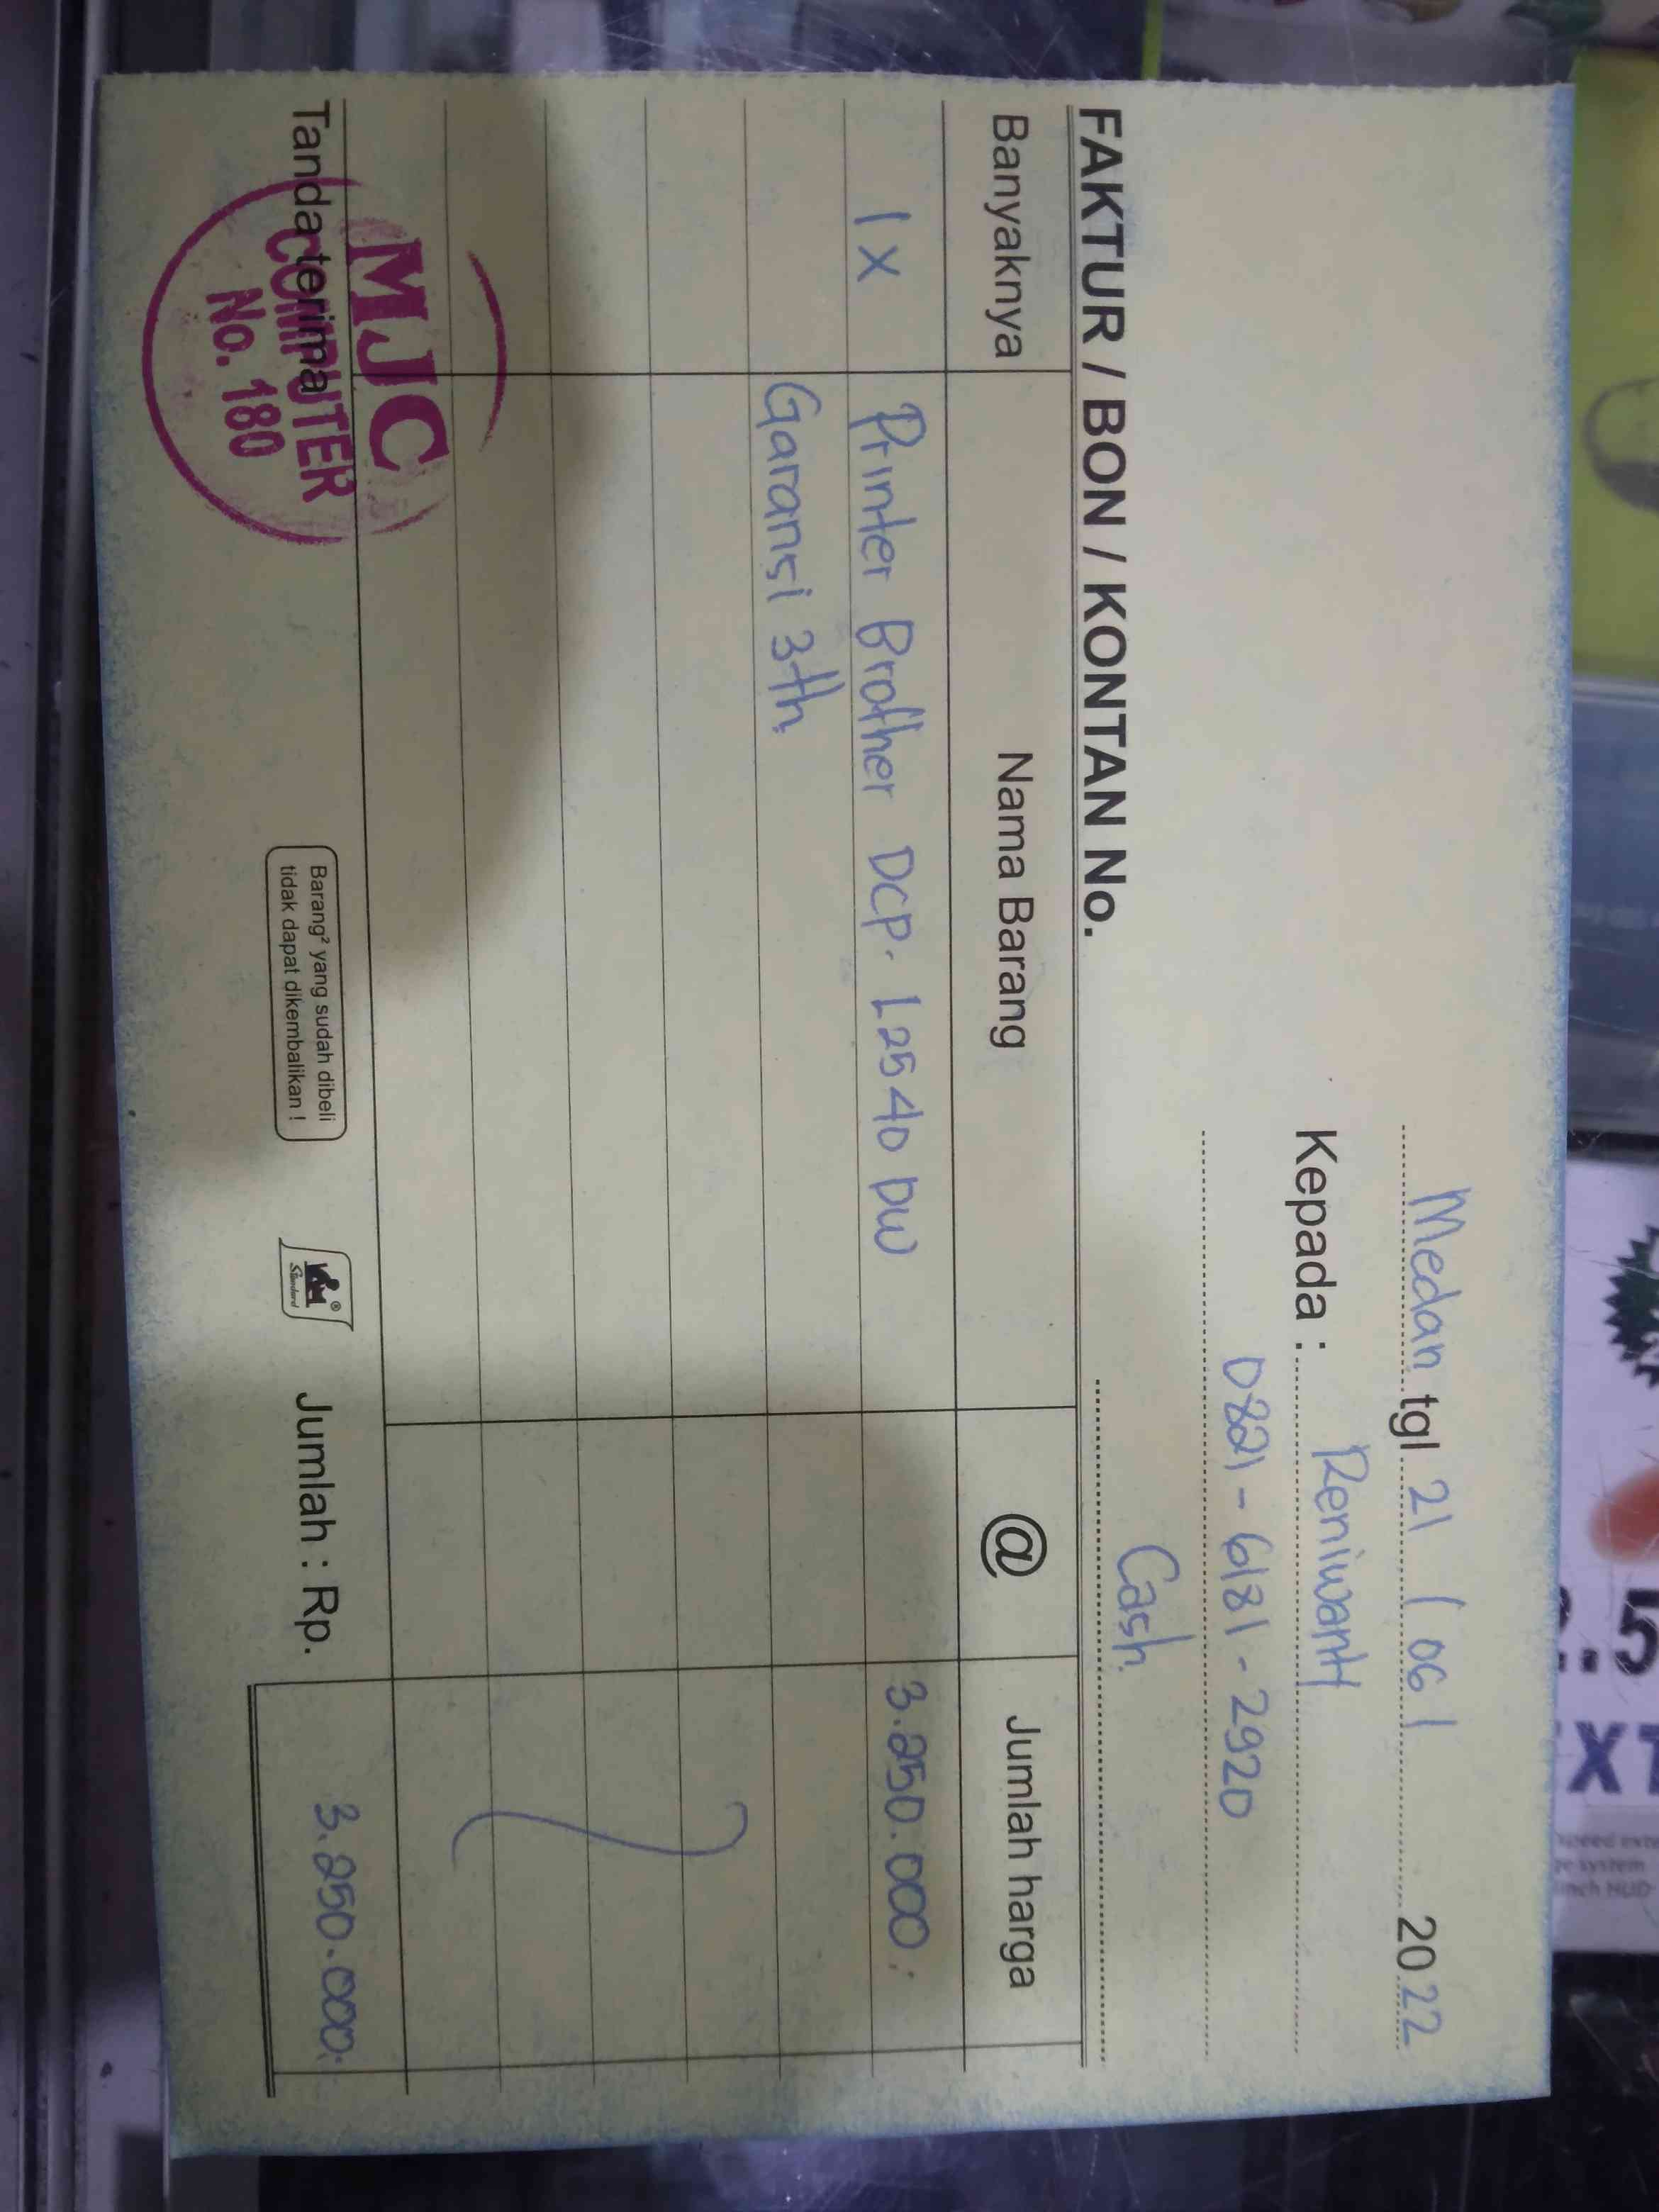 Medan tgl 21 / 06 / 2022
Kepada : Reniwanti
0821 - 6181 - 2920
FAKTUR / BON / KONTAN No. Cash
Banyaknya Nama Barang @ Jumlah harga
1 x Printer Brother DCP. L2540 DW 3.250.000,-
Garansi 3th
MJC
COMPUTER
No. 180
Tanda terima
Barang² yang sudah dibeli
tidak dapat dikembalikan !
Standard
Jumlah : Rp. 3.250.000,-